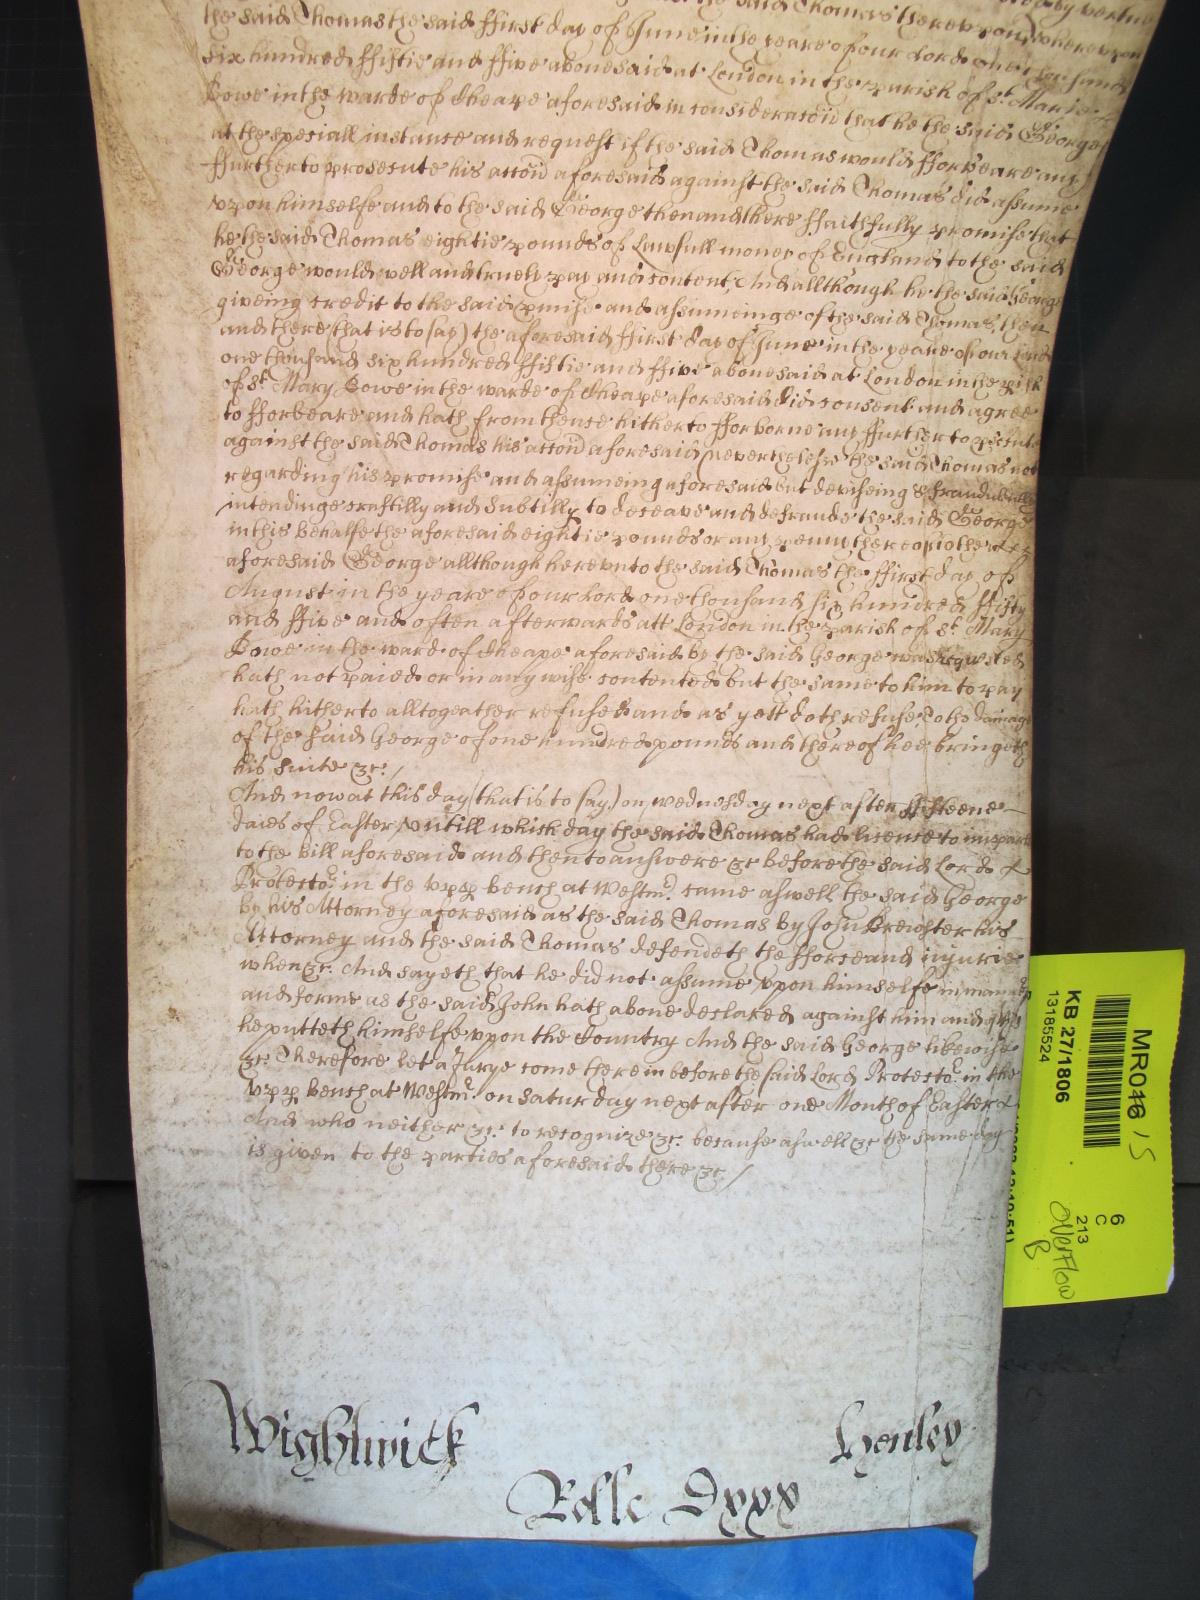 the said Thomas therevpon wherevpon
the said Thomas the said ffirst day of June in the yeare of our Lord one thousand
six hundred ffiftie and ffive abovesaid at London in the parish of st. Marie
Bowe in the warde of Cheape aforesaid in consideracōn that he the said George
at the speciall instance and request of the said Thomas would fforbeare any
ffurther to prosecute his accōn aforesaid against the said Thomas did assume
vpon himselfe and to the said George then and there ffaithfully promise that
he the said Thomas eightie pounds of Lawfull money of England to the said
George would well and truely pay and content, And allthough he the said George
giveing credit to the said pmise and assumeinge of the said Thomas, then
and there (that is to say) the aforesaid ffirst day of June in the yeare of our Lord
one thousand six hundred ffiftie and ffive abovesaid at London in the pish
of st. Mary Bowe in the warde of Cheape aforesaid did consent and agree
to fforbeare and hath from thence hitherto fforborne any ffurther to psecute
against the said Thomas his accōn aforesaid, nevertheless the said Thomas not
regarding his promise and assumeing aforesaid but deviseing & fraudulently
intendinge craftilly and subtilly to deceave and defraude the said George
in this behalfe the aforesaid eightie pounds or any penny thereof to the
aforesaid George allthough herevnto the said Thomas the ffirst day of
August in the yeare of our Lord one thousand six hundred ffifty
and ffive and often afterwards att London in the parish of st. Mary
Bowe in the ward of Cheape aforesaid by the said George was requested
hath not paied or in any wise contented but the same to him to pay
hath hitherto alltogeather refused and as yett doth refuse, To the damage
of the said George of one hundred pounds and thereof hee bringeth
his suite &c. /
And now at this day (that is to say) on wednesday next after ffifteene
daies of Easter vntill which day the said Thomas had licence to imparle
to the bill aforesaid and then to answere &c before the said Lord
Protector. in the vpp bench at Westmr. came aswell the said George
by his Attorney aforesaid as the said Thomas by John Brewster his
Attorney and the said Thomas defendeth the fforce and injurie
when &c. And sayeth that he did not assume vpon himselfe in manner
and forme as the said John hath above declared against him and of this
he putteth himselfe vpon the Country And the said George likewise
&c Therefore let a Jurye come therein before the said Lord Protector. in the
vpp bench at Westmr. on Saturday next after one Month of Easter
And who neither &c. to recognize &c. because aswell &c the same day
is given to the parties aforesaid there &c /
Wightwick
Henley
Rolle Dxxx
MR046 / 5
KB 27/1806
13185524
6
C
213
Overflow
B